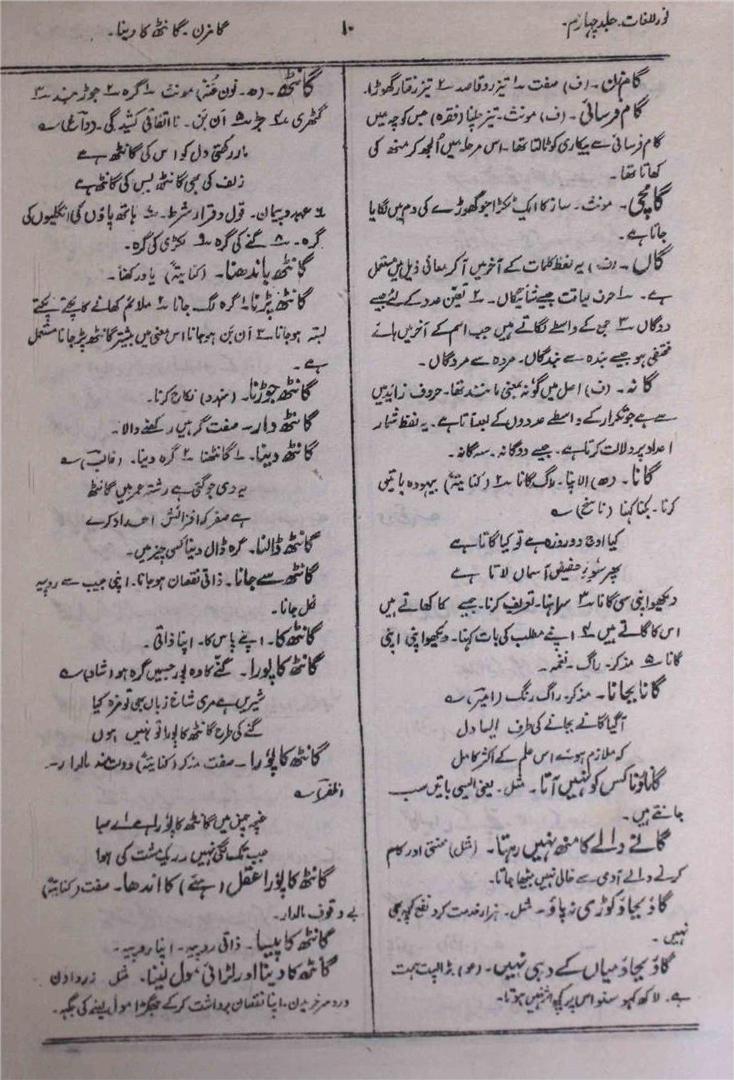 نور اللغات۔ جلد چہارم۔
۱۰
گامزن۔ گانٹھ کا دینا۔
گامزن۔ (ف) صفت ۱؎ تیز رو قاصد ۲؎ تیز رفتار گھوڑا۔
گام فرسائی۔ (ف) مونث۔ تیز چلنا (فقرہ) میں کوچہ میں
گام فرسائی سے بیکاری کو ٹالتا تھا۔ اس مرحلہ میں اُلجھ کر منھ کی
کھاتا تھا۔
گامچی۔ مونث۔ ساز کا ایک ٹکڑا جو گھوڑے کی دم میں لگایا
جاتا ہے۔
گاں۔ (ف) یہ لفظ کلمات کے آخر میں آکر معانی ذیل میں مستعمل
ہے۔ ۱؎ حرف لیاقت جیسے شائیگاں۔ ۲؎ تعین عدد کے لئے جیسے
دوگاں ۳؎ جمع کے واسطے لگاتے ہیں جب اسم کے آخر میں ہائے
مختفی ہو جیسے بندہ سے بندگاں۔ مردہ سے مردگاں۔
گانہ۔ (ف) اصل میں گونہ بمعنی مانند تھا۔ حروف زاید میں
سے ہے جو تکرار کے واسطے عددوں کے بعد آتا ہے۔ یہ لفظ شمار
اعداد پر دلالت کرتا ہے۔ جیسے دوگانہ۔ سہ گانہ۔
گانا۔ (ھ) الاپنا۔ راگ گانا ۲؎ (کنایۃً) بیہودہ باتیں
کرنا۔ بکنا کہنا (ناسخ) ؎
کیا اوج دو روزہ ہے تو کیا گاتا ہے
پھر سوئے حضیض آسماں لاتا ہے
دیکھو اپنی سی گانا ۳؎ سراہنا۔ تعریف کرنا۔ جیسے جس کا کھاتے ہیں
اس کا گاتے ہیں ۴؎ اپنے مطلب کی بات کہنا۔ دیکھو اپنی اپنی
گانا ۵؎ مذکر۔ راگ۔ نغمہ۔
گانا بجانا۔ مذکر۔ راگ رنگ (امیر) ؎
آگیا گانے بجانے کی طرف ایسا دل
کہ ملازم ہوئے اس علم کے اکثر کامل
گانا رونا کس کو نہیں آتا۔ مثل۔ یعنی ایسی باتیں سب
جانتے ہیں۔
گانے والے کا منھ نہیں رہتا۔ (مثل) محنتی اور کام
کرنے والے آدمی سے خالی نہیں بیٹھا جاتا۔
گاؤ بجاؤ کوڑی نہ پاؤ۔ مثل۔ ہزار خدمت کرو نفع کچھ بھی
نہیں۔
گاؤ بجاؤ میاں کے دہی نہیں۔ (عو) بڑا
ہے۔ لاکھ کہو سنو اس پر کچھ اثر نہیں ہوتا۔
گانٹھ۔ (ھ۔ نون غنہ) مونث ۱؎ گرہ ۲؎ جوڑ بند ۳؎
گٹھری ۴؎ جڑ ۵؎ اَن بَن۔ نا اتفاقی کشیدگی۔ ؎
مار رکھتی دل کو اس کی گانٹھ ہے
زلف کی بھی گانٹھ بس کی گانٹھ ہے
۶؎ عہد و پیمان۔ قول و قرار شرط۔ ۷؎ ہاتھ پاؤں کی انگلیوں کی
گرہ۔ ۸؎ گنے کی گرہ ۹؎ لکڑی کی گرہ۔
گانٹھ باندھنا۔ (کنایۃً) یاد رکھنا۔
گانٹھ پڑنا ۱؎ گرہ لگ جانا ۲؎ ملائم کھانے کا پکتے پکتے
بستہ ہو جانا ۳؎ اَن بَن ہو جانا اس معنی میں بیشتر گانٹھ پڑ جانا مستعمل
ہے۔
گانٹھ جوڑنا۔ (ہنود) نکاح کرنا۔
گانٹھ دار۔ صفت گرہیں رکھنے والا۔
گانٹھ دینا۔ ۱؎ گانٹھنا ۲؎ گرہ دینا۔ (غالب) ؎
یہ دی جو گئی ہے رشتہ عمر میں گانٹھ
ہے صفر کہ افزائش اعداد کرے
گانٹھ ڈالنا۔ گرہ ڈال دینا کسی چیز میں۔
گانٹھ سے جانا۔ ذاتی نقصان ہو جانا۔ اپنی جیب سے روپیہ
نکل جانا۔
گانٹھ کا۔ اپنے پاس کا۔ اپنا ذاتی۔
گانٹھ کا پورا۔ گنے کا وہ پور جسمیں گرہ ہو (شاد) ؎
شیریں ہے مری شاخ زباں بھی تو مزہ کیا
گنے کی طرح گانٹھ کا پورا تو نہیں ہوں
گانٹھ کا پُورا۔ صفت مذکر (کنایۃً) دولت مند مالدار۔
(ظفر) ؎
غنچہ چمن میں گانٹھ کا پورا ہے اے صبا
جب تک لگی نہیں زر یک مشت کی ہوا
گانٹھ کا پورا عقل (ہئے) کا اندھا۔ صفت (کنایۃً)
بے وقوف مالدار۔
گانٹھ کا پیسا۔ ذاتی روپیہ۔ اپنا روپیہ۔
گانٹھ کا دینا اور لڑائی مول لینا۔ مثل زر دادن
درد سر خریدن۔ اپنا نقصان برداشت کر کے جھگڑا مول لینے کی جگہ۔